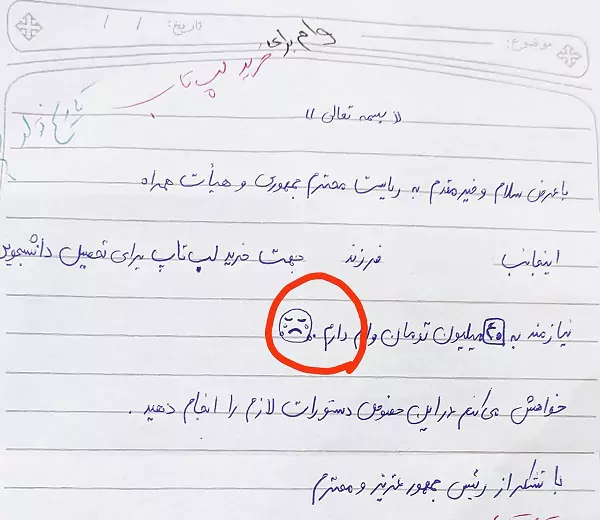 موضوع:
تاریخ: / /
وام برای
خرید لپ تاپ
« بسمه تعالی »
با عرض سلام و خیر مقدم به ریاست محترم جمهوری و هیأت همراه
اینجانب فرزند جهت خرید لپ تاپ برای تحصیل دانشجویی
نیازمند به ۴۰ میلیون تومان وام دارم.
خواهش می‌کنم در این خصوص دستورات لازم را انجام دهید.
با تشکر از رئیس جمهور عزیز و محترم